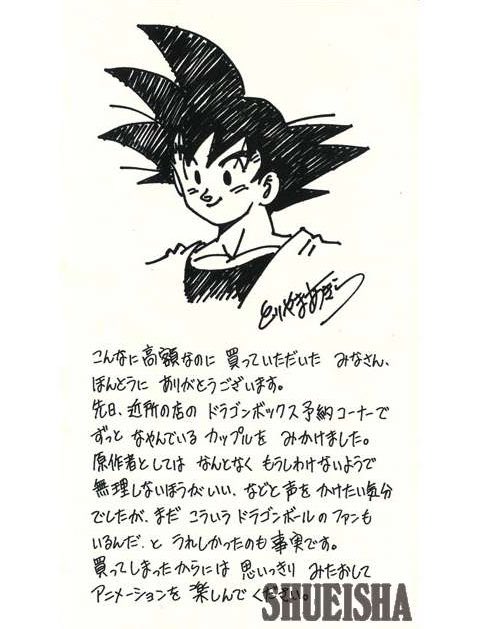 とりやまあきら
こんなに高額なのに 買っていただいた みなさん、
ほんとうに ありがとうございます。
先日、近所の店の ドラゴンボックス予約コーナーで
ずっと なやんでいる カップルを みかけました。
原作者としては なんとなく もうしわけないようで
無理しないほうがいい、などと声を かけたい気分
でしたが、まだ こういう ドラゴンボールの ファンも
いるんだ、と うれしかったのも 事実です。
買ってしまったからには 思いっきり みたおして
アニメーションを 楽しんで ください。
SHUEISHA